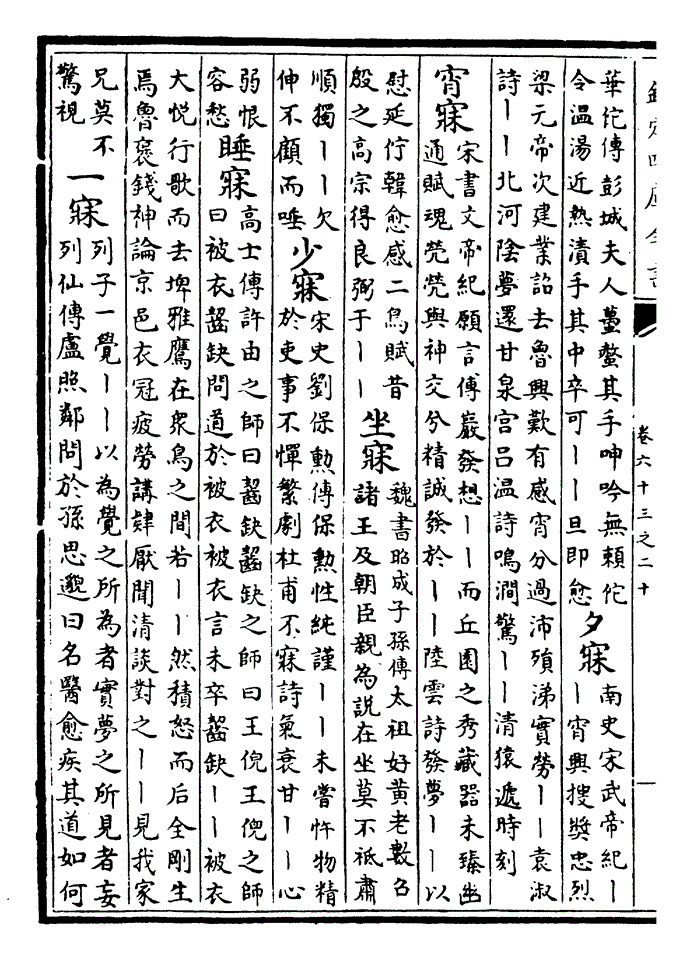 欽定四庫全書
卷六十三之二十
一
華佗傳彭城夫人蠆螫其手呻吟無賴佗
令温湯近熱漬手其中卒可丨丨旦即愈
夕寐
南史宋武帝紀丨
丨宵興搜奬忠烈
梁元帝次建業詔去魯興歎有感宵分過沛殞涕實勞丨丨袁淑
詩丨丨北河陰夢還甘泉宫吕温詩鳴澗驚丨丨清猿遞時刻
宵寐
宋書文帝紀願言傅巖發想丨丨而丘園之秀藏器未臻幽
通賦魂煢煢與神交兮精誠發於丨丨陸雲詩發夢丨丨以
慰延佇韓愈感二鳥賦昔
殷之高宗得良弼于丨丨
坐寐
魏書昭成子孫傳太祖好黄老數召
諸王及朝臣親為説在坐莫不祗肅
順獨丨丨欠
伸不顧而唾
少寐
宋史劉保勲傳保勲性純謹丨丨未嘗忤物精
於吏事不憚繁劇杜甫不寐詩氣衰甘丨丨心
弱恨
容愁
睡寐
高士傳許由之師曰齧缺齧缺之師曰王倪王倪之師
曰被衣齧缺問道於被衣被衣言未卒齧缺丨丨被衣
大悦行歌而去埤雅鷹在衆鳥之間若丨丨然積怒而后全剛生
焉魯褒錢神論京邑衣冠疲勞講肄厭聞清談對之丨丨見我家
兄莫不
驚視
一寐
列子一覺丨丨以為覺之所為者實夢之所見者妄
列仙傳盧照鄰問於孫思邈曰名醫愈疾其道如何